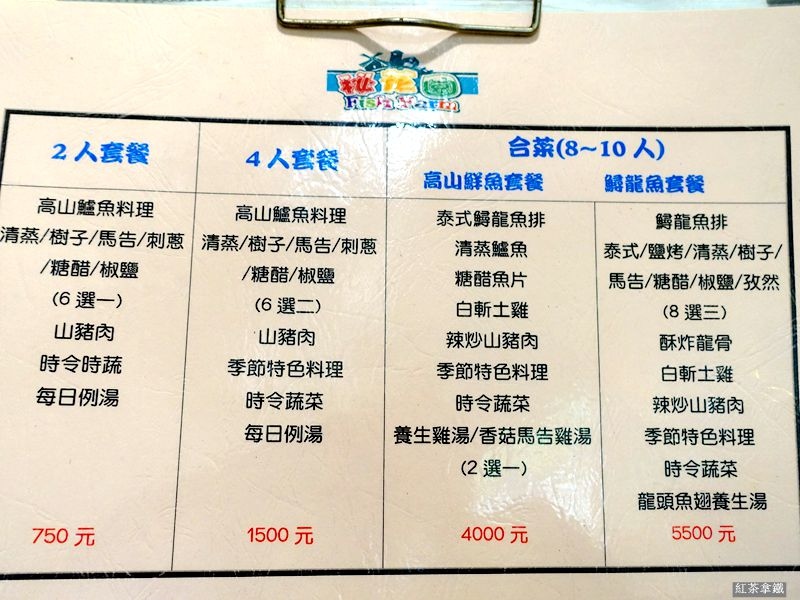 桃花園
Fish Farm
2人套餐
高山鱸魚料理
清蒸/樹子/馬告/刺蔥
/糖醋/椒鹽
(6選一)
山豬肉
時令時蔬
每日例湯
750元
4人套餐
高山鱸魚料理
清蒸/樹子/馬告/刺蔥
/糖醋/椒鹽
(6選二)
山豬肉
季節特色料理
時令蔬菜
每日例湯
1500元
合菜(8~10人)
高山鮮魚套餐
泰式鱘龍魚排
清蒸鱸魚
糖醋魚片
白斬土雞
辣炒山豬肉
季節特色料理
時令蔬菜
養生雞湯/香菇馬告雞湯
(2選一)
4000元
鱘龍魚套餐
鱘龍魚排
泰式/鹽烤/清蒸/樹子/
馬告/糖醋/椒鹽/孜然
(8選三)
酥炸龍骨
白斬土雞
辣炒山豬肉
季節特色料理
時令蔬菜
龍頭魚翅養生湯
5500元
紅茶拿鐵